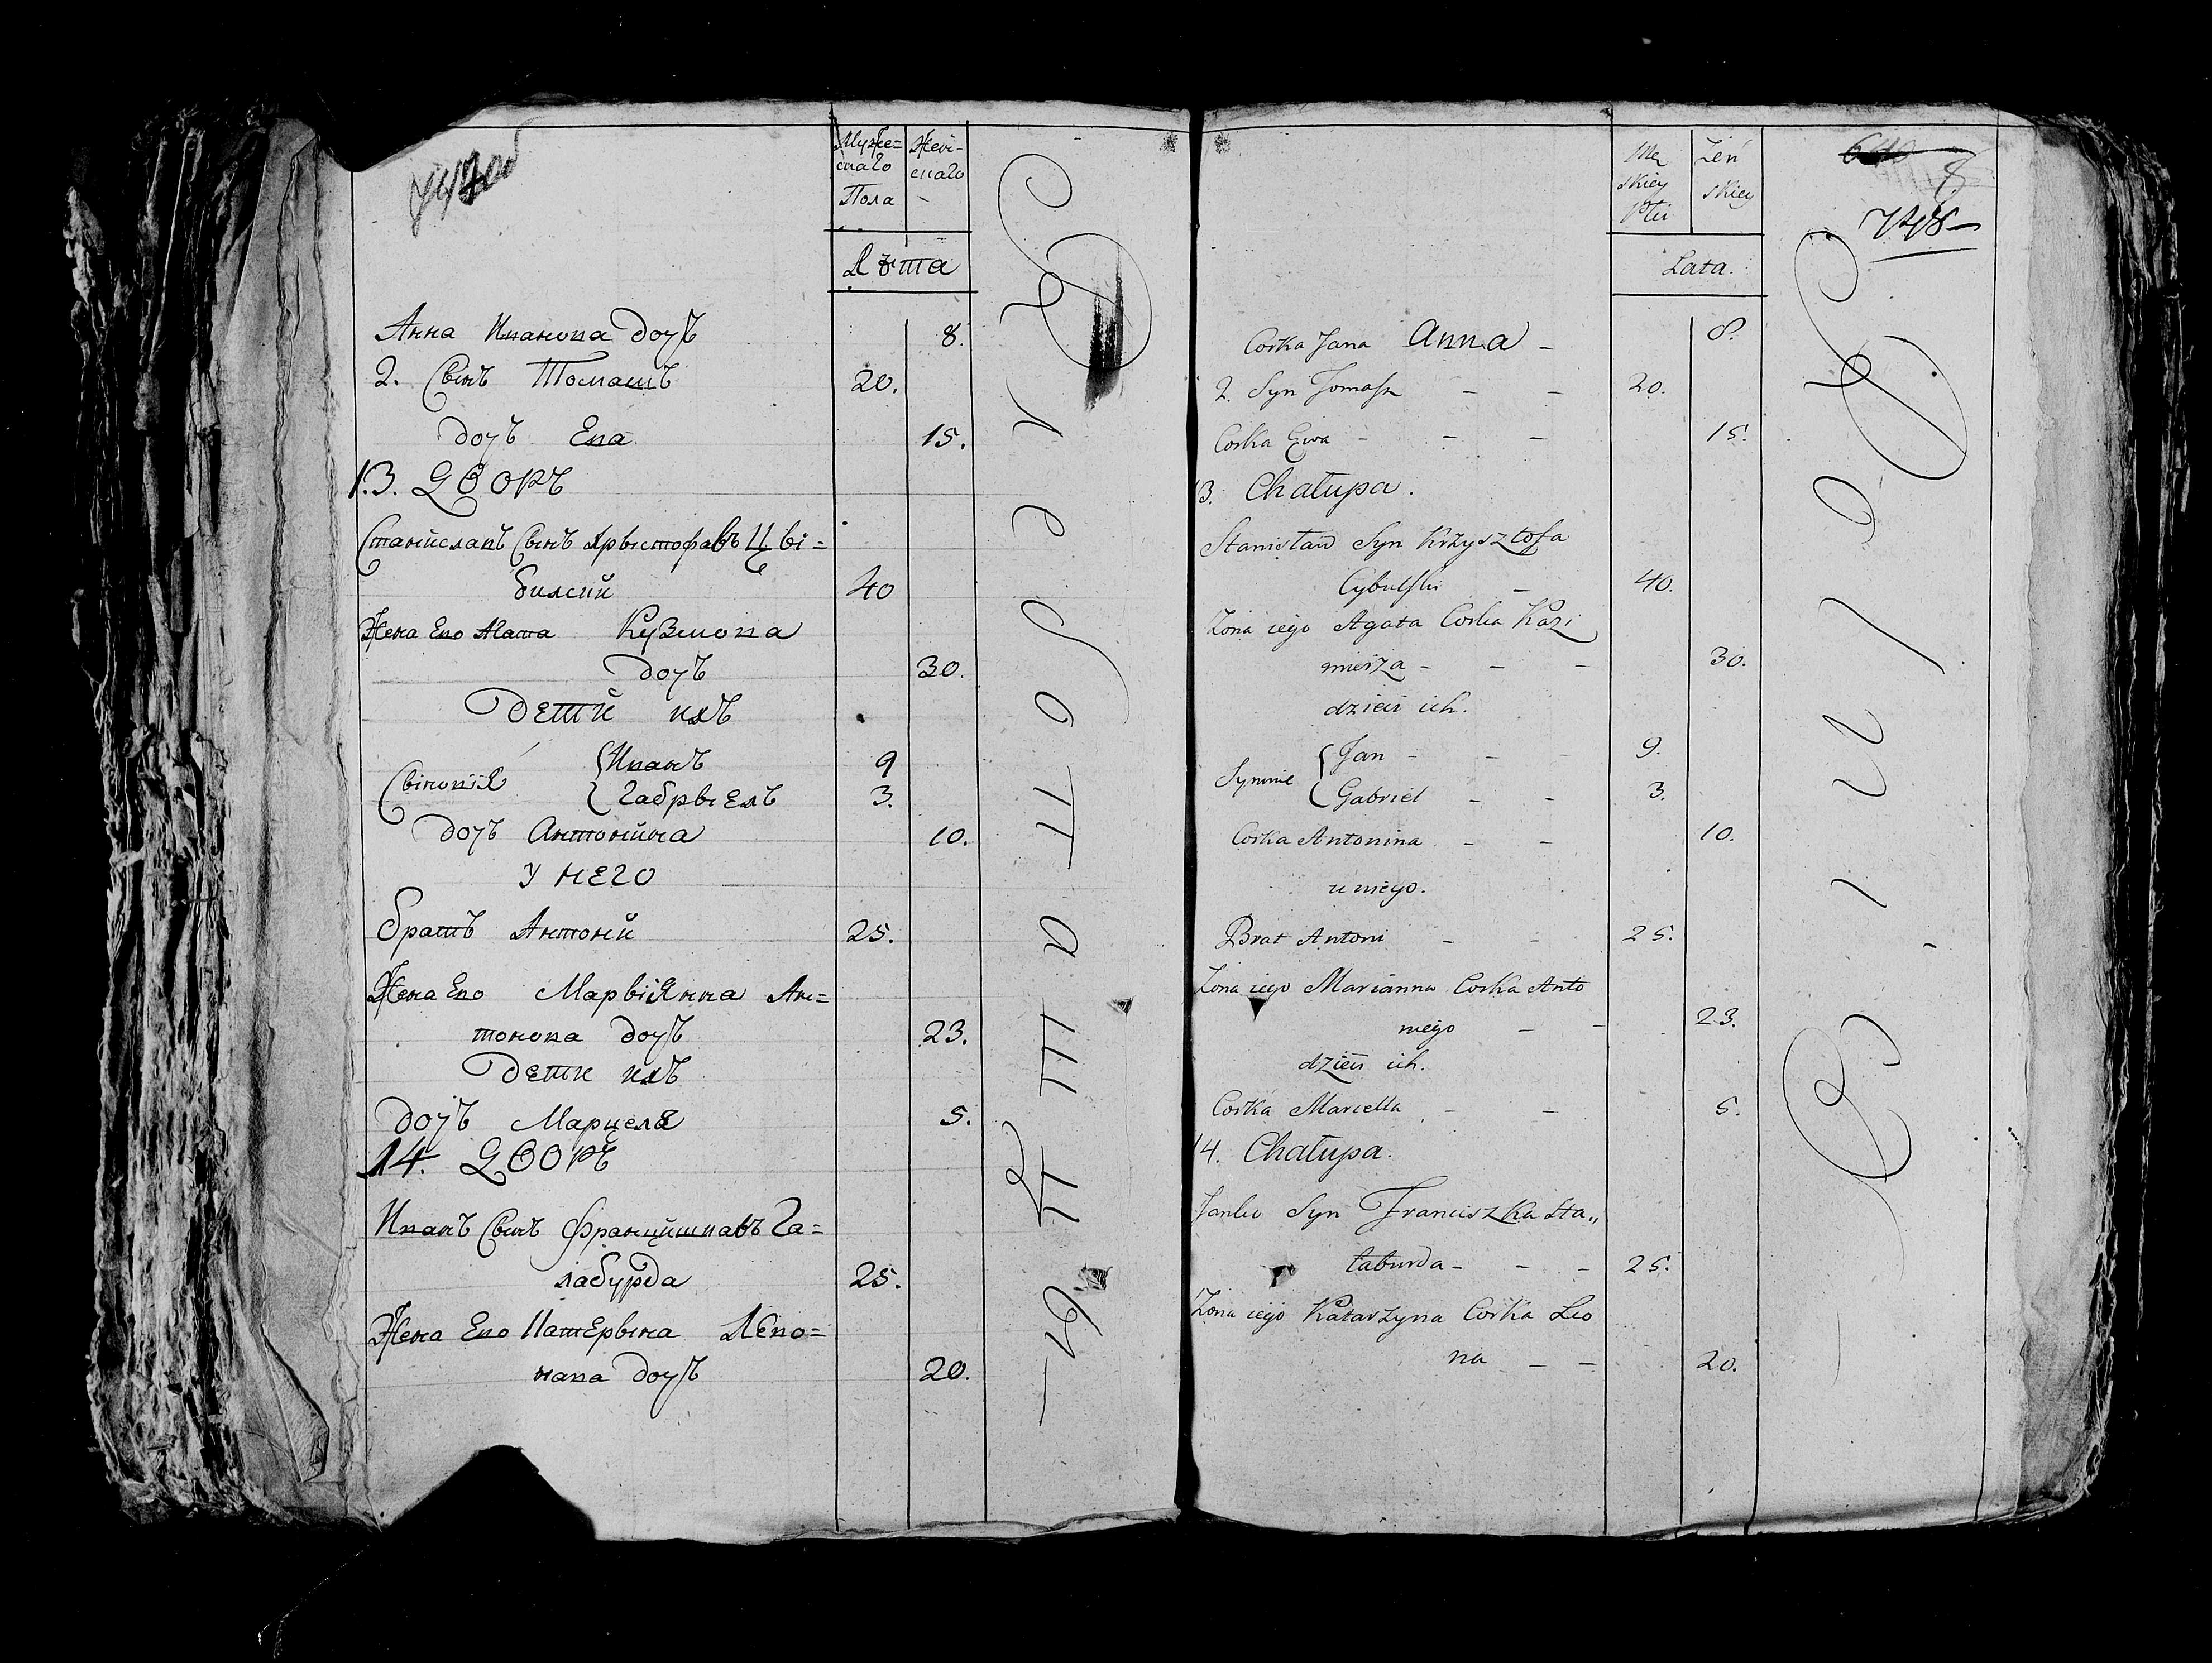 Муже=
скаго
Пола
Жені-
скаго
Лѣта
Анна Иванова дочь
8.
2. Сынъ Томашъ
20.
дочь Ева
15.
13. Дворъ
Станиславъ Сынъ Крыстофавъ Цы=
булскій
40
Жена Ево Агата Кузмова
дочь
30.
Дети ихъ
Сыновія
{Иванъ
9
{Габрыель
3.
дочь Антонина
10.
У него
братъ Антоній
25.
Жена Ево Марыянна Ан=
тонова дочь
23.
Дети ихъ
дочь Марцеля
5.
14. Дворъ
Иванъ Сынъ Францишкавъ Га=
лабурда
25.
Жена Ево Катерына Лево=
нава дочь
20.
Mę
skiey
Płci
Żeń
skiey
8
748
Lata.
Corka Jana Anna –
8.
2. Syn Tomasz – –
20.
Corka Ewa – – –
15.
13. Chałupa.
Stanisław Syn Krzysztofa
Cybulski –
40.
Żona iego Agata Corka Kazi
mierza – – –
30.
dzieci ich.
Synowie
{Jan – – –
9.
{Gabriel – –
3.
Corka Antonina – –
10.
u niego.
Brat Antoni – –
25.
Żona iego Marianna Corka Anto
niego – –
23.
dzieci ich.
Corka Marcella – –
5.
14. Chałupa.
Janko Syn Franciszka Ha„
łaburda – – –
25.
Żona iego Katarzyna Corka Leo
na – –
20.